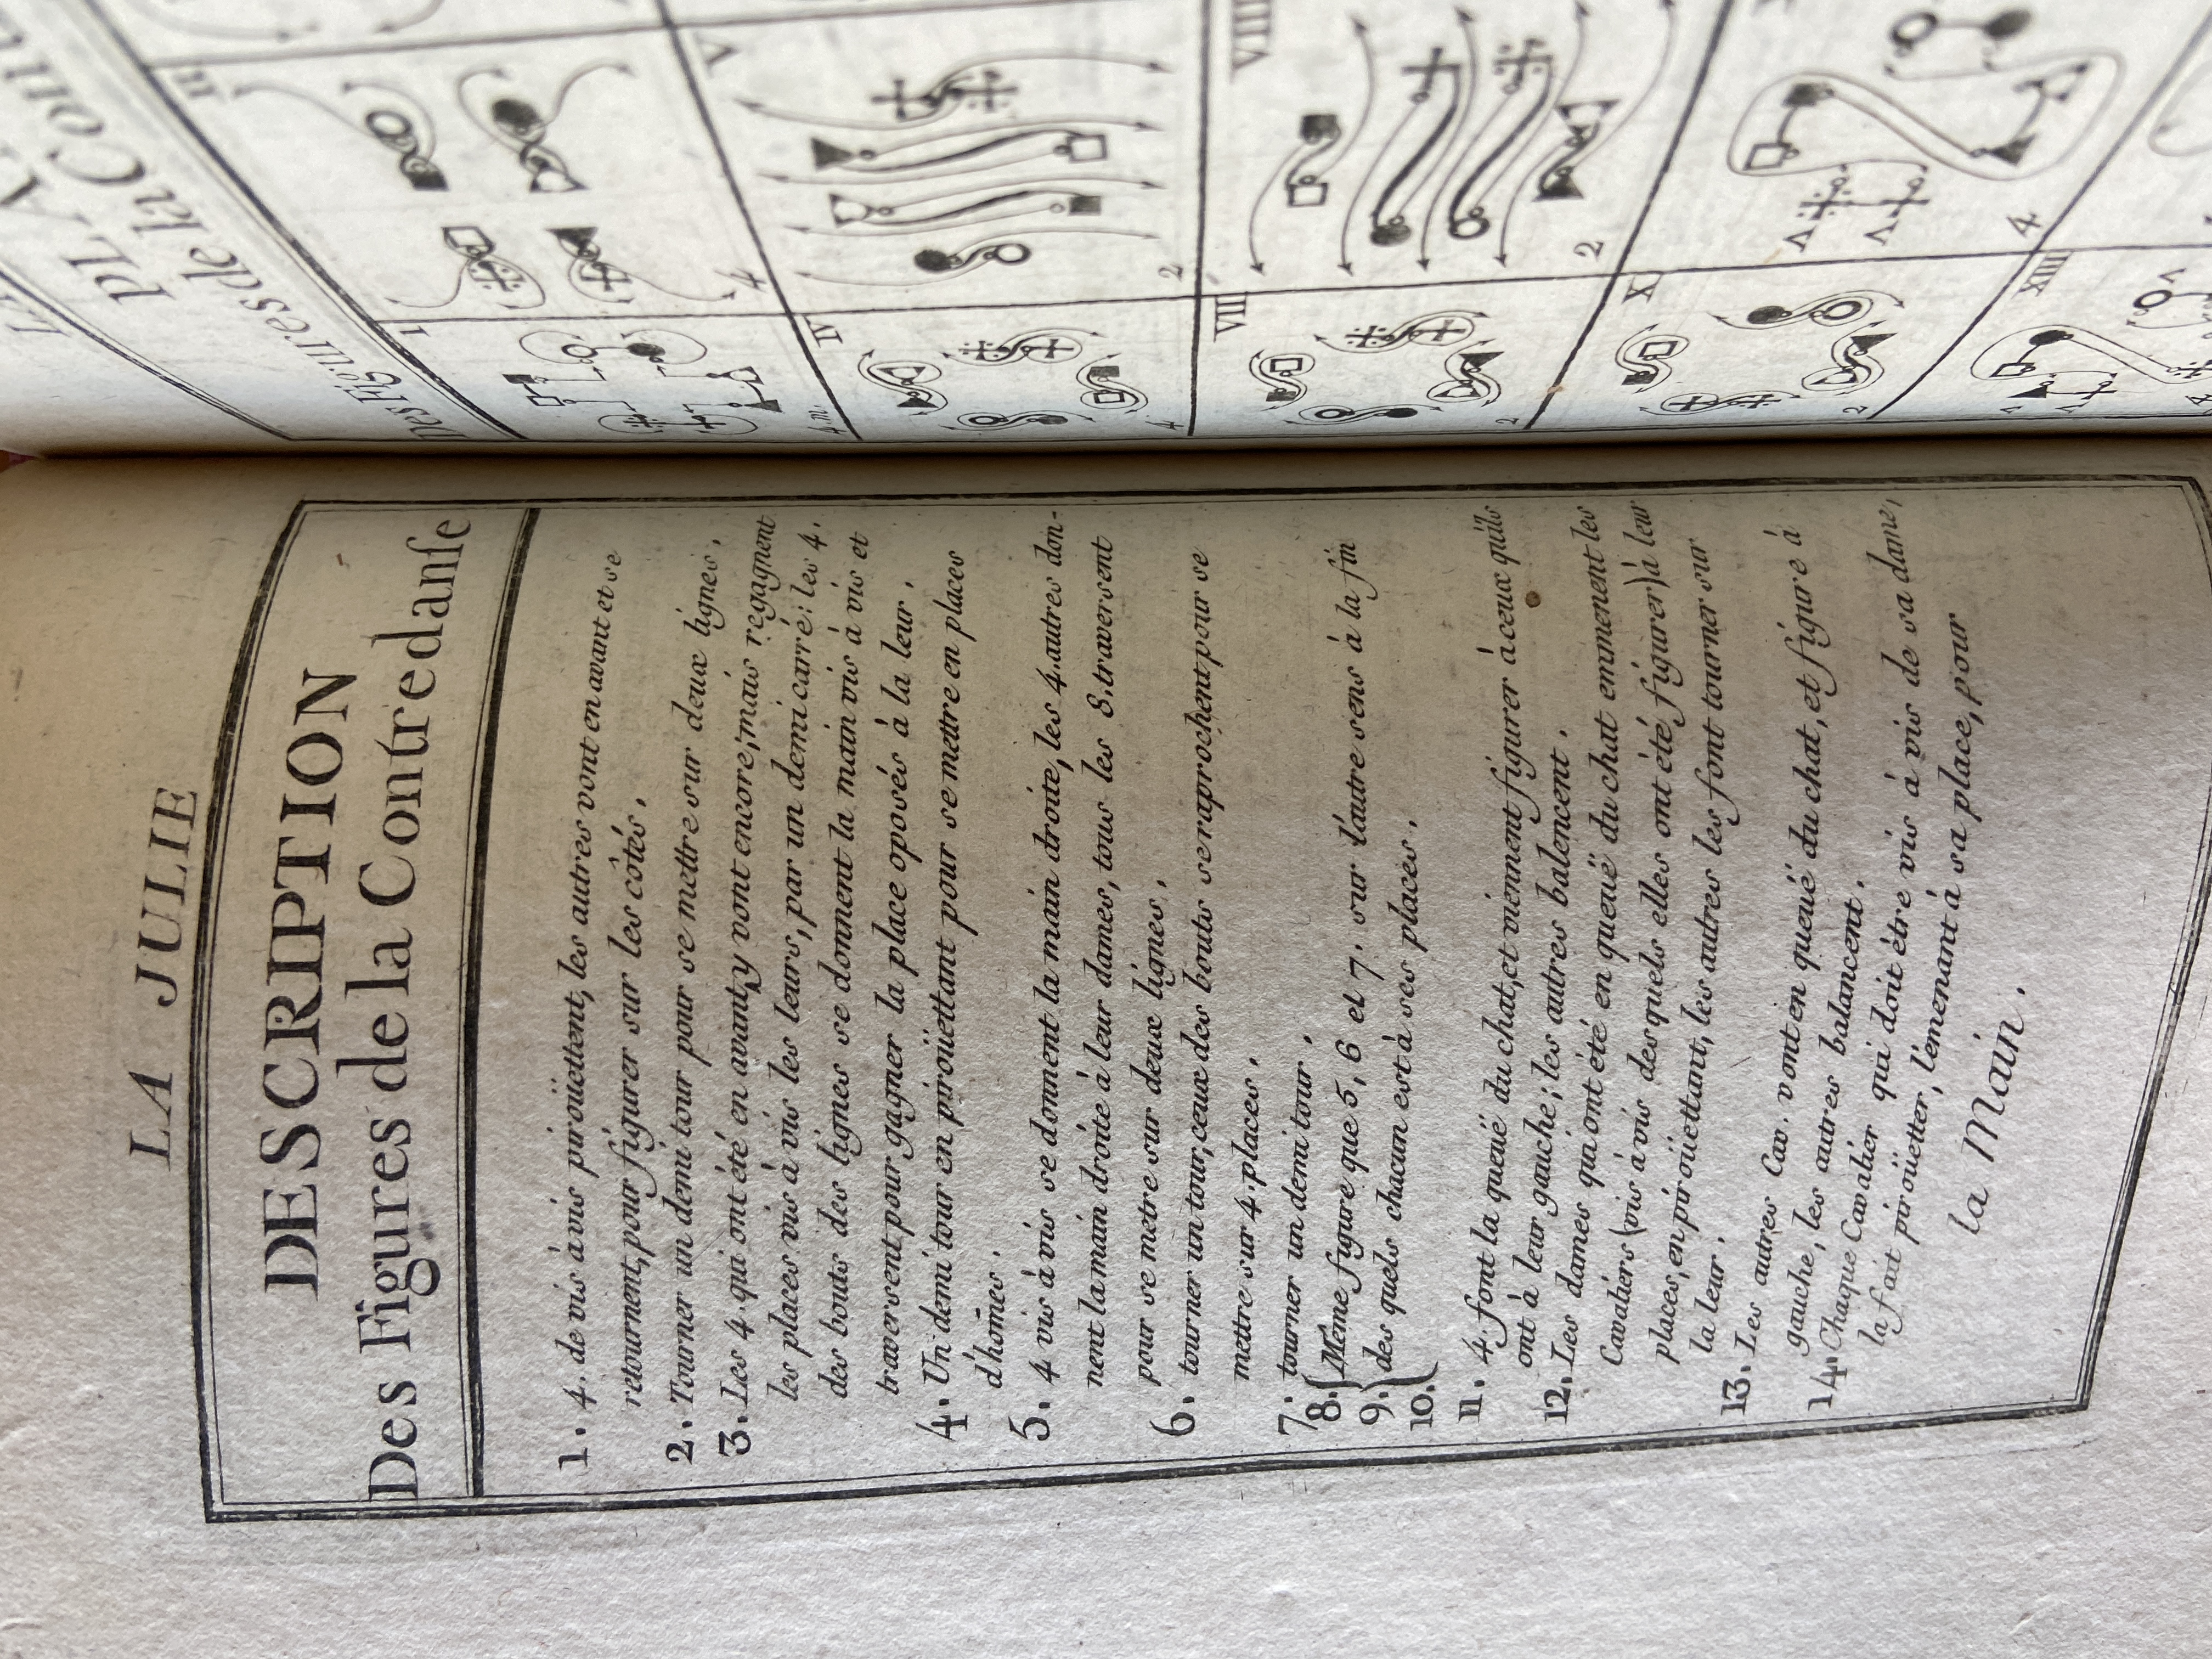 LA JULIE
DESCRIPTION
Des Figures de la Contredanse
1. 4. de vis à vis piroüettent, les autres vont en avant et se
retournent, pour figurer sur les côtés.
2. Tourner un demi tour pour se mettre sur deux lignes.
3. Les 4. qui ont été en avant, y vont encore; mais regagnent
les places vis à vis les leurs, par un demi carré: les 4.
des bouts des lignes se donnent la main vis à vis et
traversent pour gagner la place oposés à la leur.
4. Un demi tour en piroüettant pour se mettre en places
d'hom̃es.
5. 4 vis à vis se donnent la main droite, les 4. autres don-
nent la main droite à leur dames, tous les 8. traversent
pour se metre sur deux lignes.
6. tourner un tour; ceux des bouts se raprochent pour se
mettre sur 4. places.
7. tourner un demi tour.
8. Même figure que 5, 6 et 7. sur l'autre sens à la fin
9. des quels chacun est à ses places.
10.
11. 4. font la queuë du chat, et viennent figurer à ceux qu'ils
ont à leur gauche; les autres balencent.
12. Les dames qui ont été en queuë du chat emmenent les
Cavaliers (vis à vis desquels elles ont été figurer) à leur
places, en piroüettant, les autres les font tourner sur
la leur.
13. Les autres Cav. vont en queuë du chat, et figure à
gauche, les autres balancent.
14. Chaque Cavalier qui doit être vis à vis de sa dame,
la fait piroüetter, l'emenant à sa place, pour
la Main.
PLA
Des Figures de la Con
I
4. m.
4
IV
4
V
2
VII
2
VIII
2
X
2
4
XIII
4